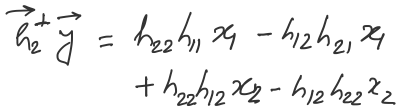 h₂⁺ y = h₂₂ h₁₁ x₁ - h₁₂ h₂₁ x₁
+ h₂₂ h₁₂ x₂ - h₁₂ h₂₂ x₂